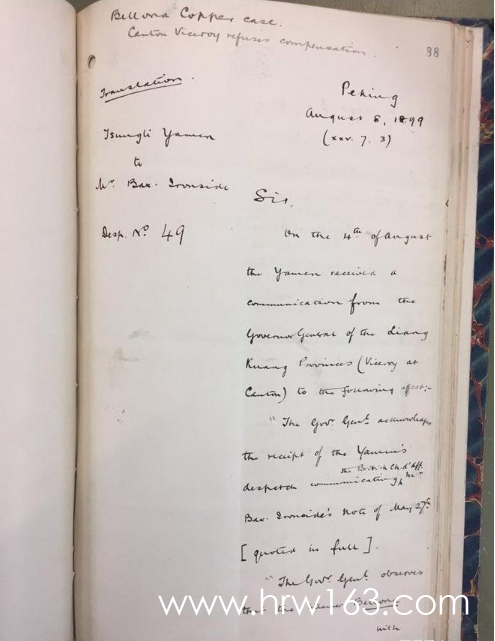 Bellona Copper case.
Canton Viceroy refuses compensation.
98
Translation.
Peking
August 8, 1899
(xxv. 7. 3)
Tsungli Yamen
to
Mr. Bax. Ironside
Sir,
Desp. No. 49
On the 4th of August
the Yamen received a
communication from the
Governor General of the Liang
Kuang Provinces (Viceroy at
Canton) to the following effect:-
"The Govr. Genl. acknowledges
the receipt of the Yamen's
the British Ch. d'Aff.
despatch communicating Mr.
Bax. Ironside's Note of May 27th
[quoted in full].
"The Govr. Genl. observes
that the Bellona
with
www.hrw163.com